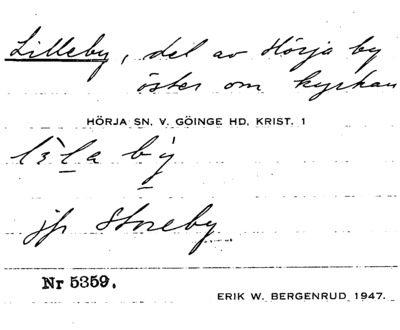 Lilleby, del av Hörja by
öster om kyrkan
HÖRJA SN, V. GÖINGE HD, KRIST. 1
lìla bý
jfr Storeby
Nr 5359.
ERIK W. BERGENRUD 1947.